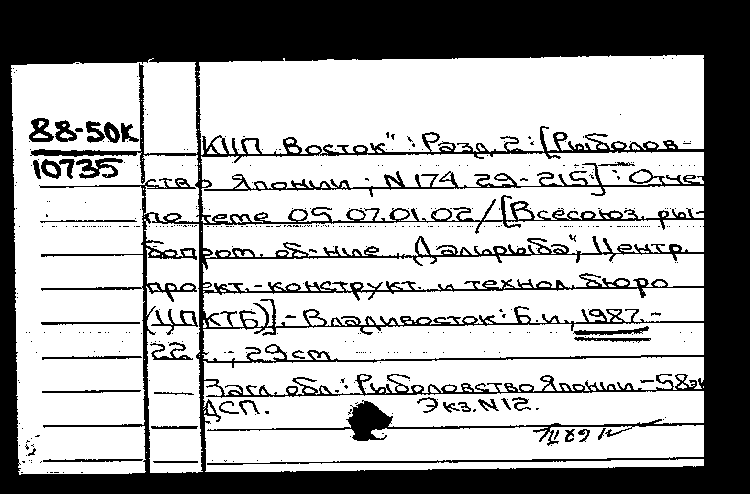 88-50К
10735
КЦП „Восток" : Разд. 2 : [Рыболов-
ство Японии ; N174. 29-215] : Отчет
по теме 05.07.01.02 / [Всесоюз. ры-
бопром. об-ние „Дальрыба", Центр.
проект.-конструкт. и технол. бюро
(ЦПКТБ)].- Владивосток : Б.и., 1987.-
22 с. ; 29 cm.
Загл. обл.: Рыболовство Японии.-58эк
ДСП. Экз. N12.